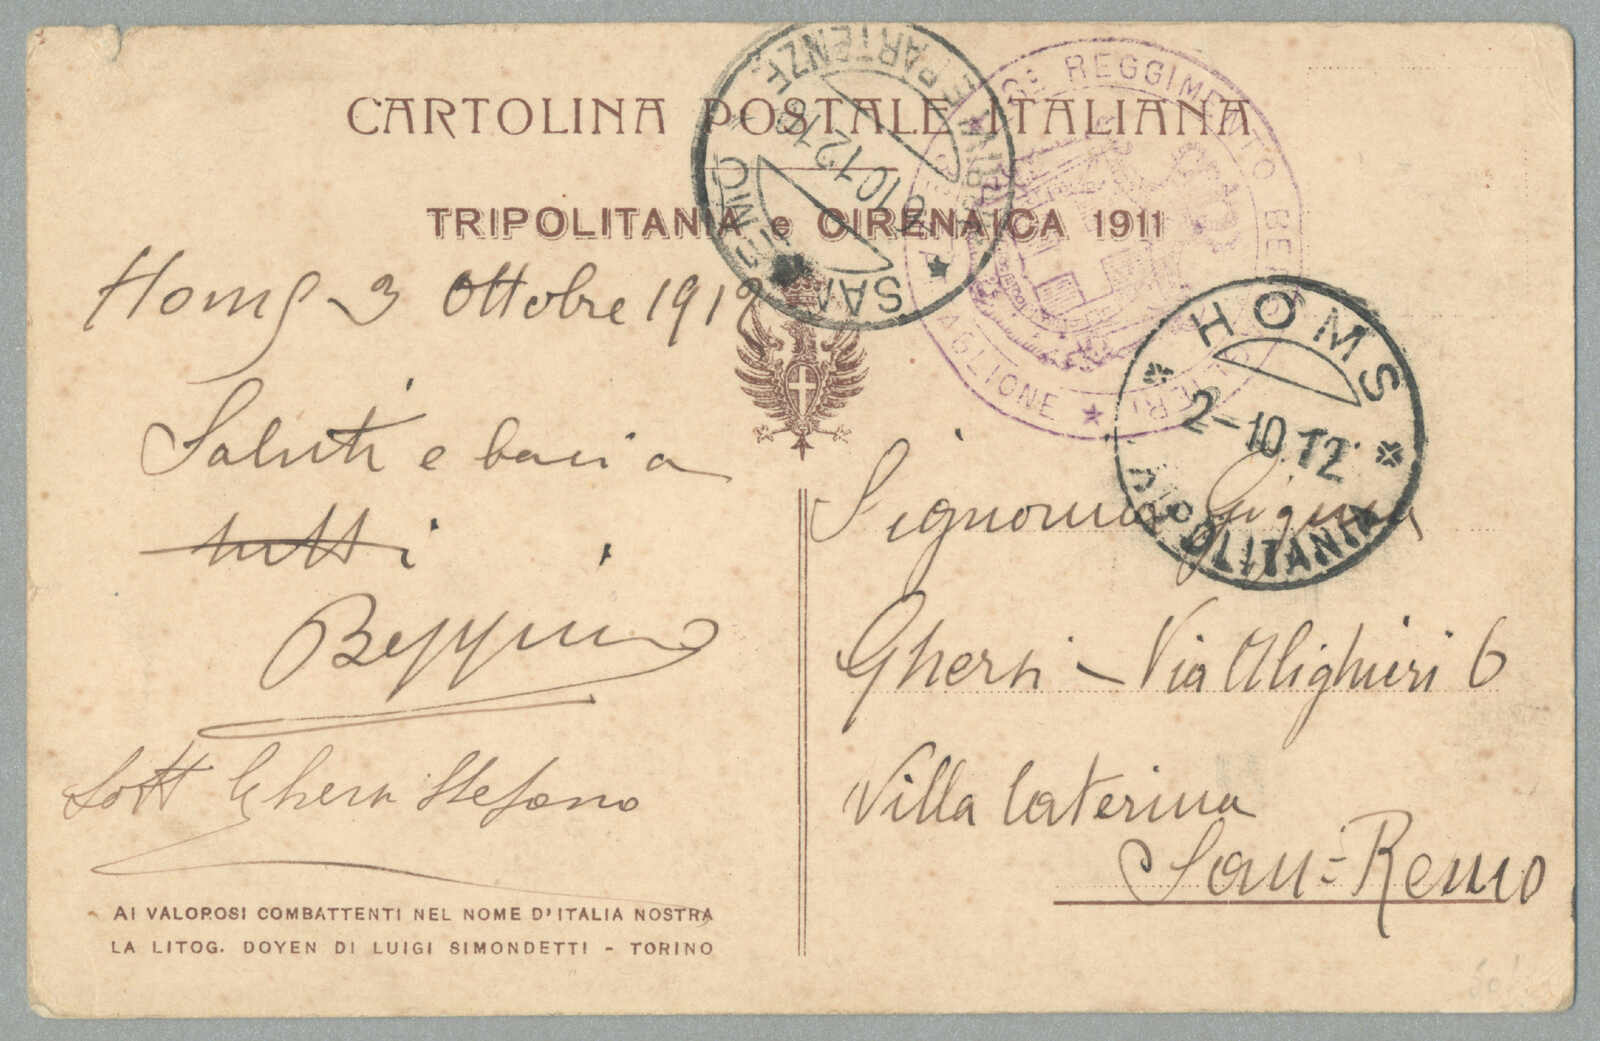 CARTOLINA POSTALE ITALIANA
TRIPOLITANIA e CIRENAICA 1911
REGGIMENTO BE
AGLIONE
IERI
SAN REMO
ARRIVI E PARTENZE
10.12
HOMS
2-10.12
TRIPOLITANIA
Homs 3 Ottobre 1912
Saluti e baci a
tutti
Beppino
Sott Ghersi Stefano
Signorina Gigina
Ghersi - Via Alighieri 6
Villa Caterina
San-Remo
AI VALOROSI COMBATTENTI NEL NOME D'ITALIA NOSTRA
LA LITOG. DOYEN DI LUIGI SIMONDETTI - TORINO